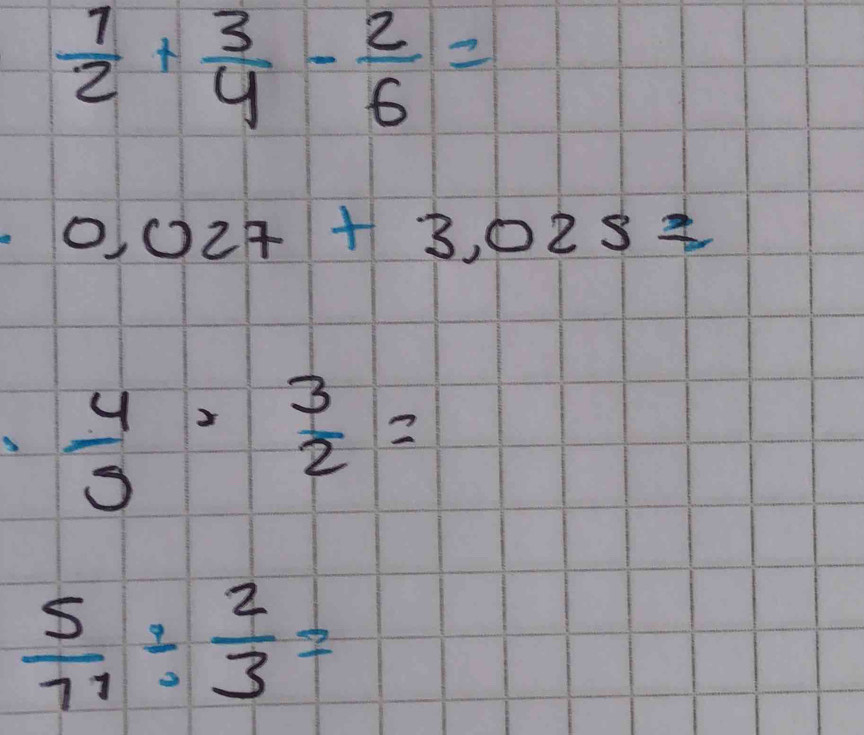 1/2 + 3/4 - 2/6 =
0,027 + 3,025 =
4/5 × 3/2 =
5/11 ÷ 2/3 =